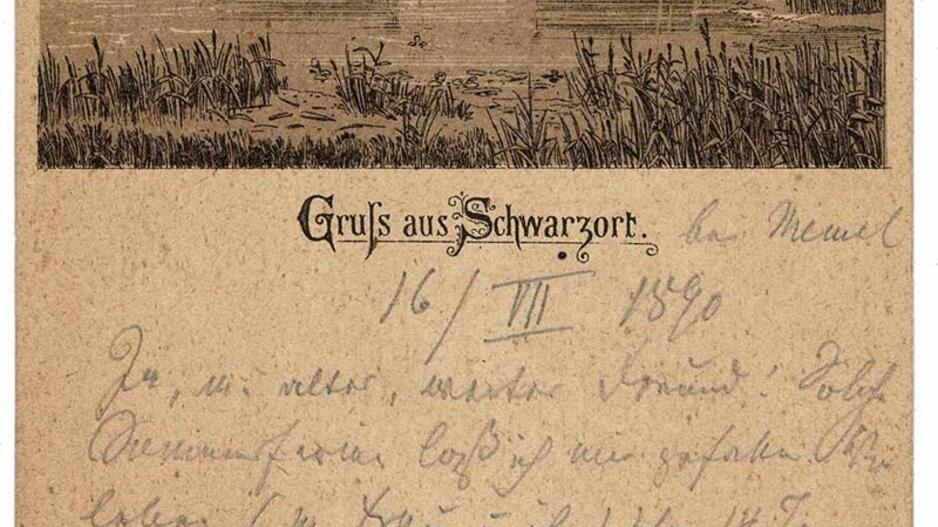 Gruſs aus Schwarzort. bei Memel
16/VII 1890
Ja, m. alter, werter Freund! Solch
Sommerferien laß ich mir gefallen. Wir
leben